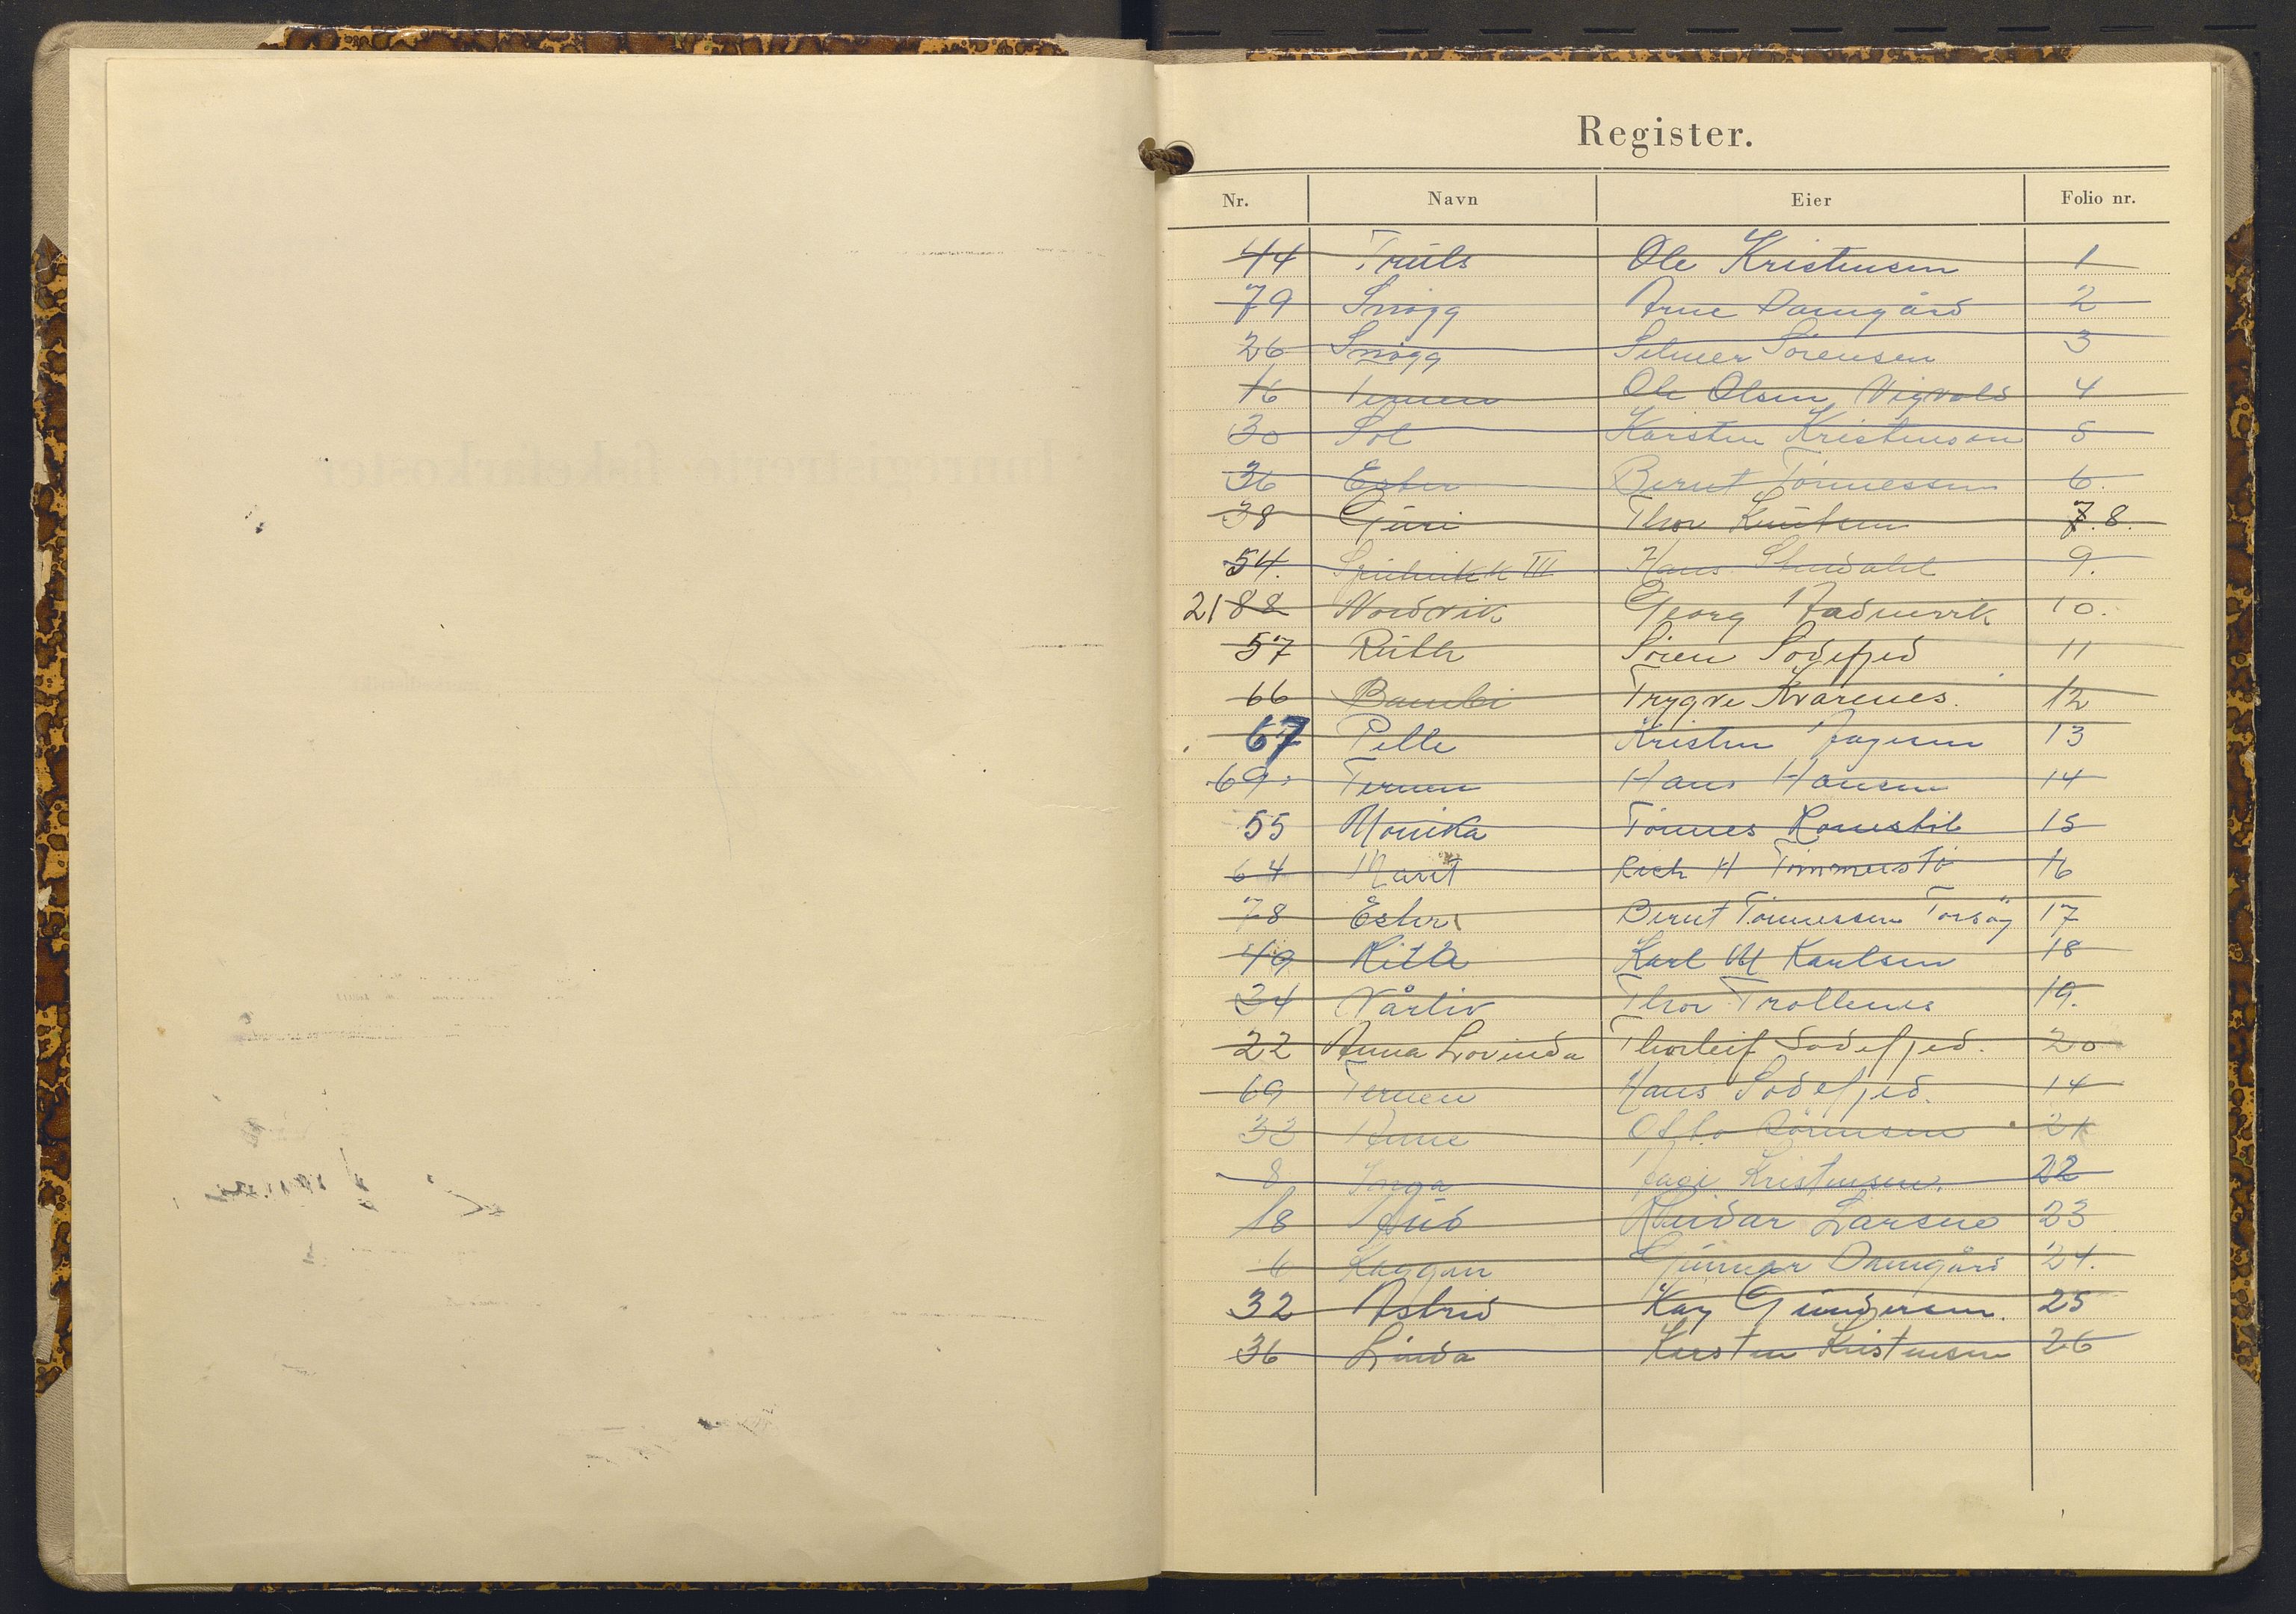 Register.
Nr. Navn Eier Folio nr.
44 Truls Ole Kristensen 1
79 Snøgg Arne Damgård 2
26 Snøgg Selmer Sörensen 3
16 Ternen Ole Olsen Vigvold 4
30 Sol Karsten Kristenson 5
36 Ester Bernt Tönnessen 6.
38 Guri Thor Knutsen 7.8.
54. III Hans 9.
2188 Nordvik Georg 10.
57 Ruth Sören Södefjed 11
66 Bambi Trygve Kvarenes. 12
67 Pelle Kristen Jagesen 13
69. Ternen Hans Hansen 14
55 Monika Tönnes Romstöl 15
64 Marit Rich H Timmerstö 16
78 Ester Bernt Tönnessen Torsöy 17
49 Rita Karl M Karlsen 18
34 Vårliv Thor Trollenes 19.
22 Anna Lovinda Thorleif Södefjed. 20
69 Ternen Hans Södefjed. 14
33 Anne Otto Sörensen 21
8 Inga Jagi Kristensen. 22
18 Reidar Larsen 23
6 Kaggen Gunnar Damgård 24.
32 Astrid Kay Gundersen. 25
36 Linda Karsten Kristensen 26